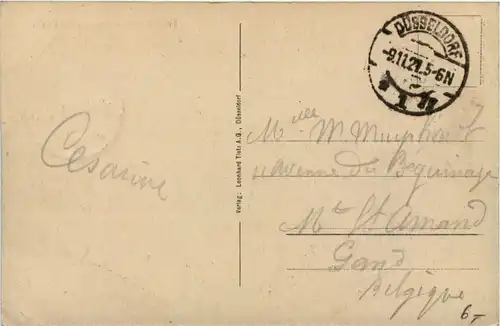 DÜSSELDORF
-9.11.21.5-6N
* 1 n
Césarine
Verlag: Leonhard Tietz A.G., Düsseldorf
Melle M
Avenue du Béguinage
Mt St Amand
Gand
Belgique
6 T